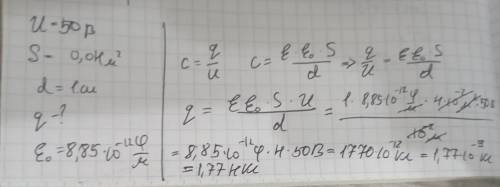 U = 50 В
S = 0,04 м²
d = 1 см
q - ?
ε₀ = 8,85·10⁻¹² Ф/м
c = q/U   c = ε ε₀·S/d ⇒ q/U = ε ε₀·S/d
q = ε ε₀·S·U/d = 1·8,85·10⁻¹² Ф/м·4·10⁻² м²·50В/10⁻² м
= 8,85·10⁻¹² Ф·4·50В = 1770·10⁻¹² Кл = 1,77·10⁻⁹ Кл
= 1,77 нКл